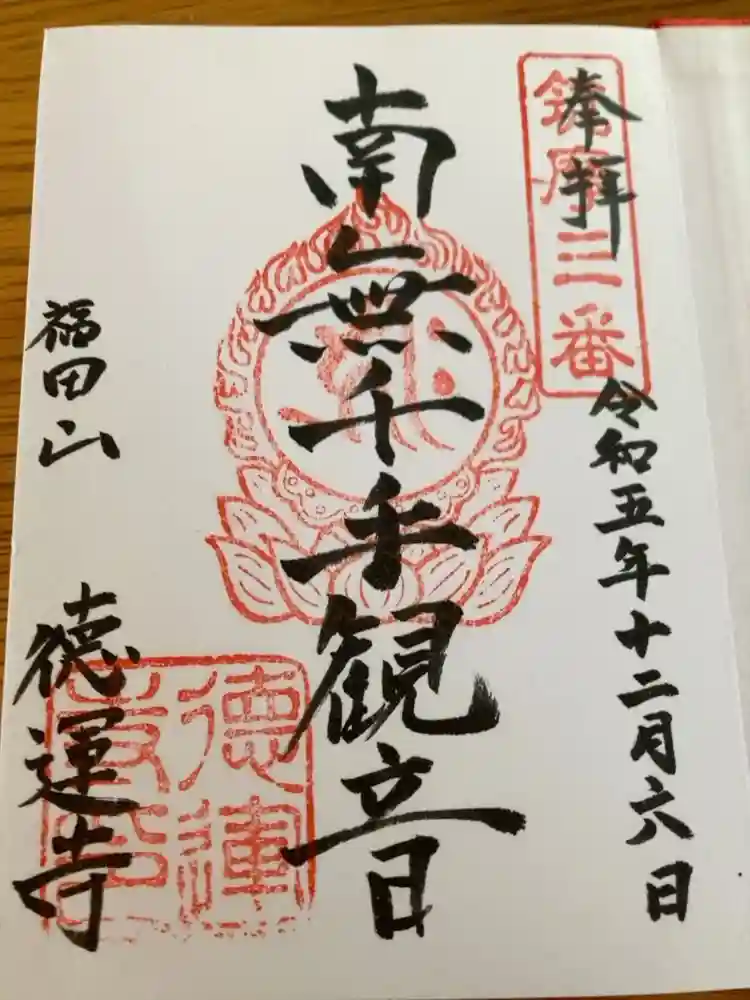 奉拝
令和五年十二月六日
南無千手観音
福田山
徳運寺
三番